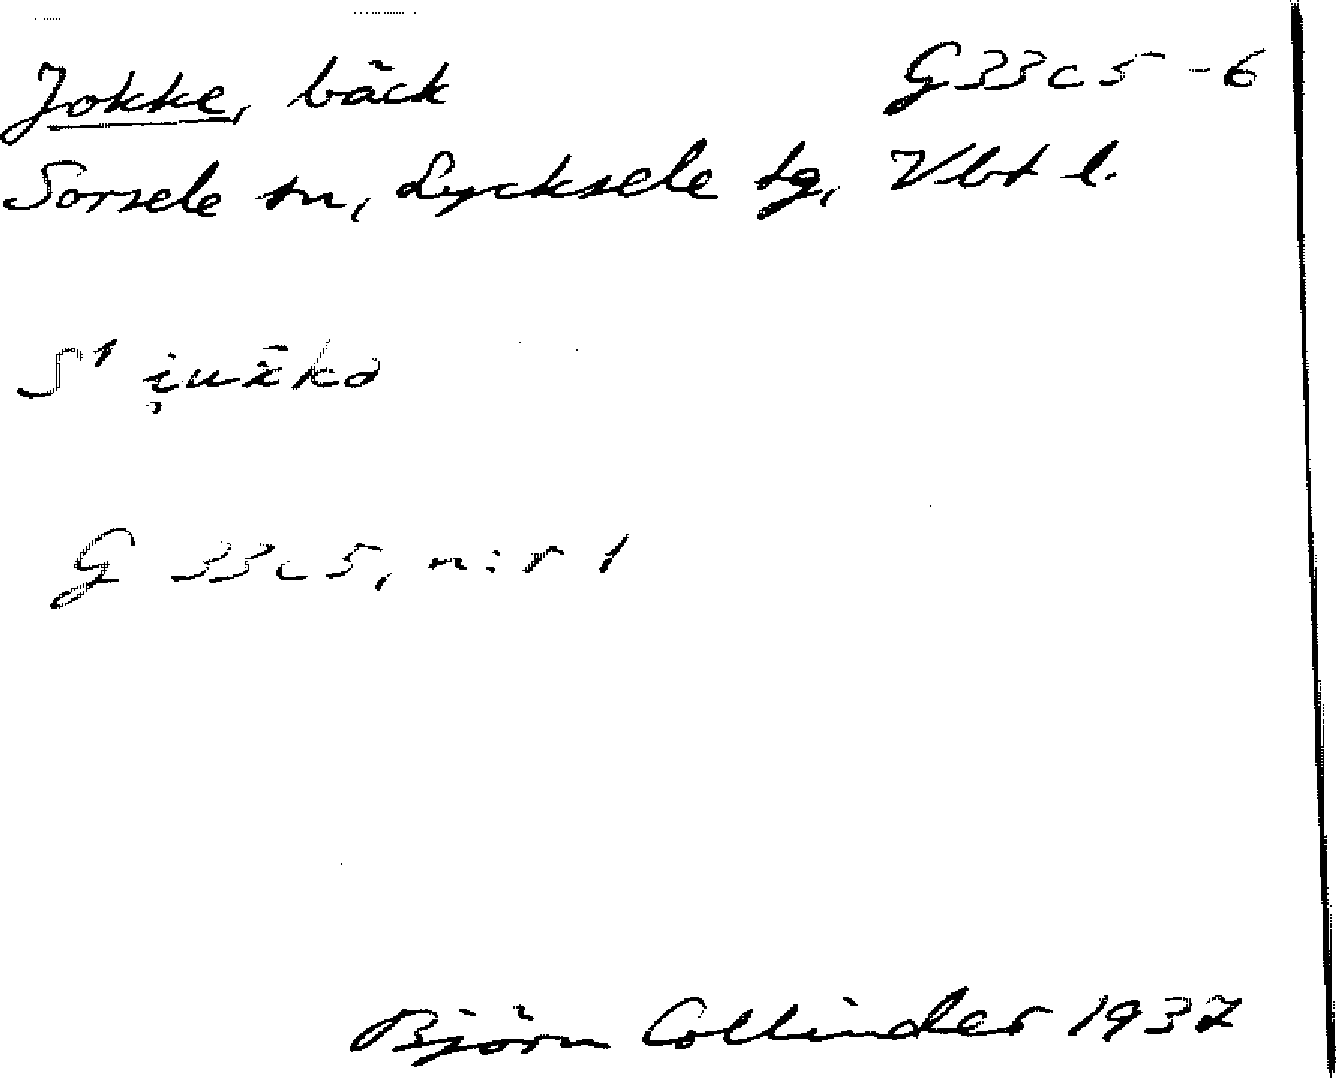 Jokke, bäck G33c5-6
Sorsele sn, Lycksele tg, Vbt l.
S1 i̯uk̄kə
G 33c5, n:r 1
Björn Collinder 1937